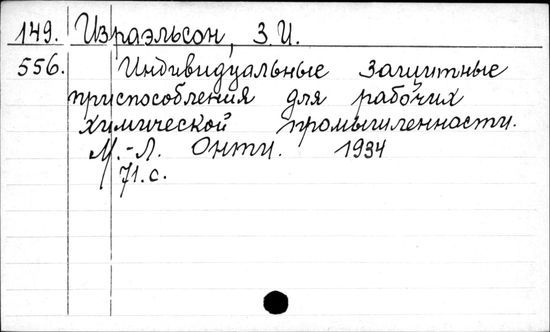 149. Израэльсон, З.И.
556. Индивидуальные защитные
приспособления для рабочих
химической промышленности.
М.-Л. Онти. 1934
71.с.